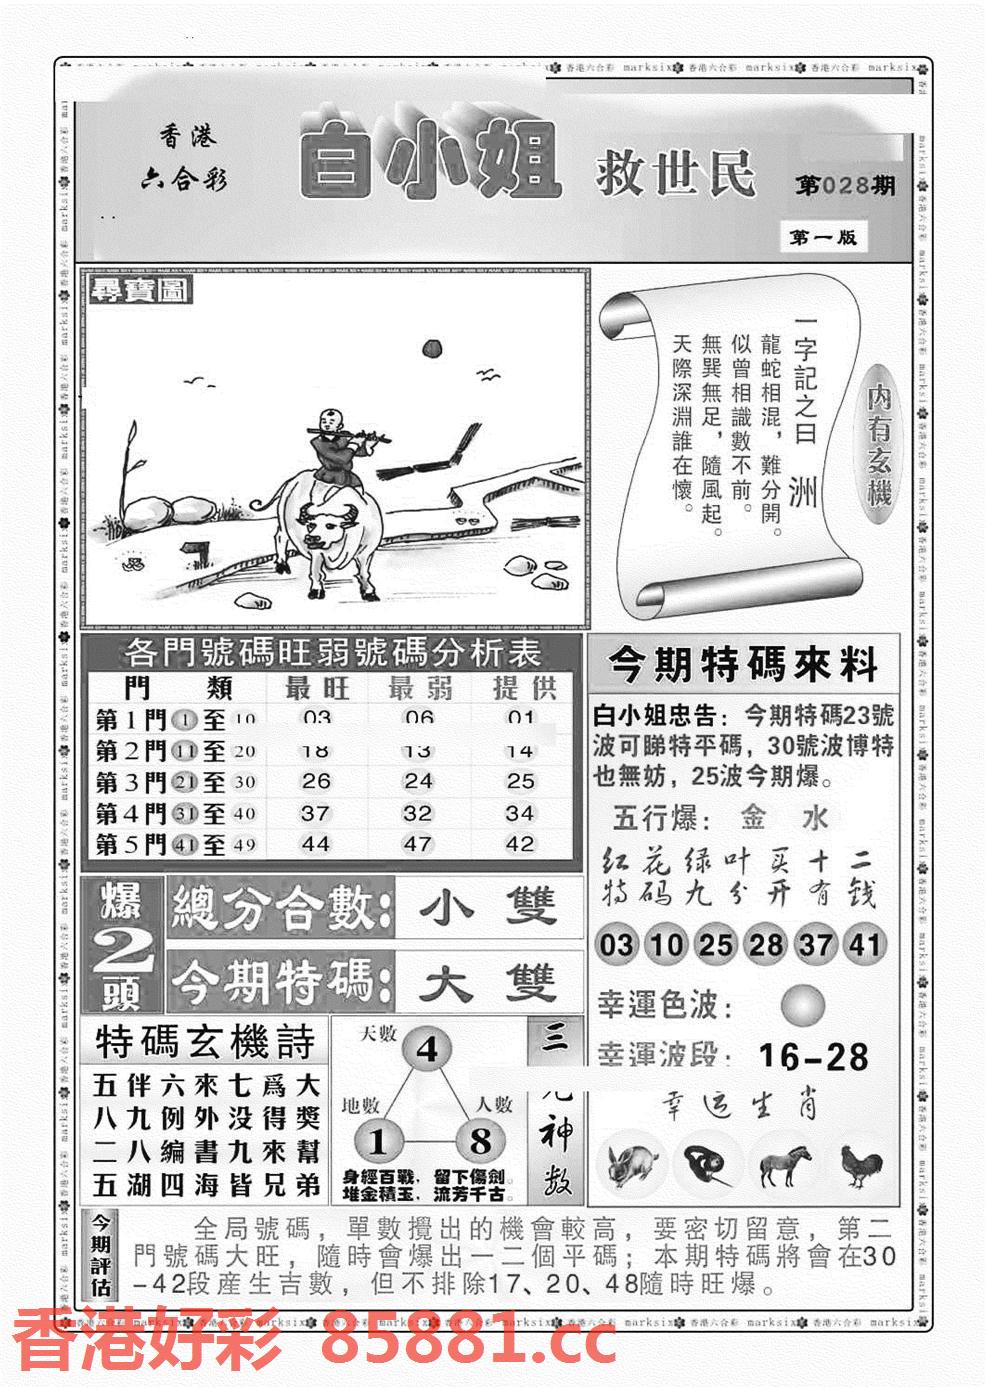 香港
六合彩
白小姐 救世民
第028期
第一版
尋寶圖
一字記之曰 洲
龍蛇相混，難分開。
似曾相識數不前。
無異無足，隨風起。
天際深淵誰在懷。
内有玄機
各門號碼旺弱號碼分析表
門 類 最旺 最弱 提供
第1門 1 至 10 03 06 01
第2門 11 至 20 18 13 14
第3門 21 至 30 26 24 25
第4門 31 至 40 37 32 34
第5門 41 至 49 44 47 42
爆2頭
總分合數: 小 雙
今期特碼: 大 雙
今期特碼來料
白小姐忠告：今期特碼23號
波可睇特平碼，30號波博特
也無妨，25波今期爆。
五行爆： 金 水
红花绿叶买十二
特码九分开有钱
03 10 25 28 37 41
幸運色波：
幸運波段：16-28
幸运生肖
特碼玄機詩
五伴六來七爲大
八九例外没得獎
二八編書九來幫
五湖四海皆兄弟
天數 4
地數 1
人數 8
身經百戰，留下傷劍。
堆金積玉，流芳千古。
三元神数
今期評估
全局號碼，單數攪出的機會較高，要密切留意，第二
門號碼大旺，隨時會爆出一二個平碼；本期特碼將會在30
-42段産生吉數，但不排除17、20、48隨時旺爆。
香港好彩 85881.cc